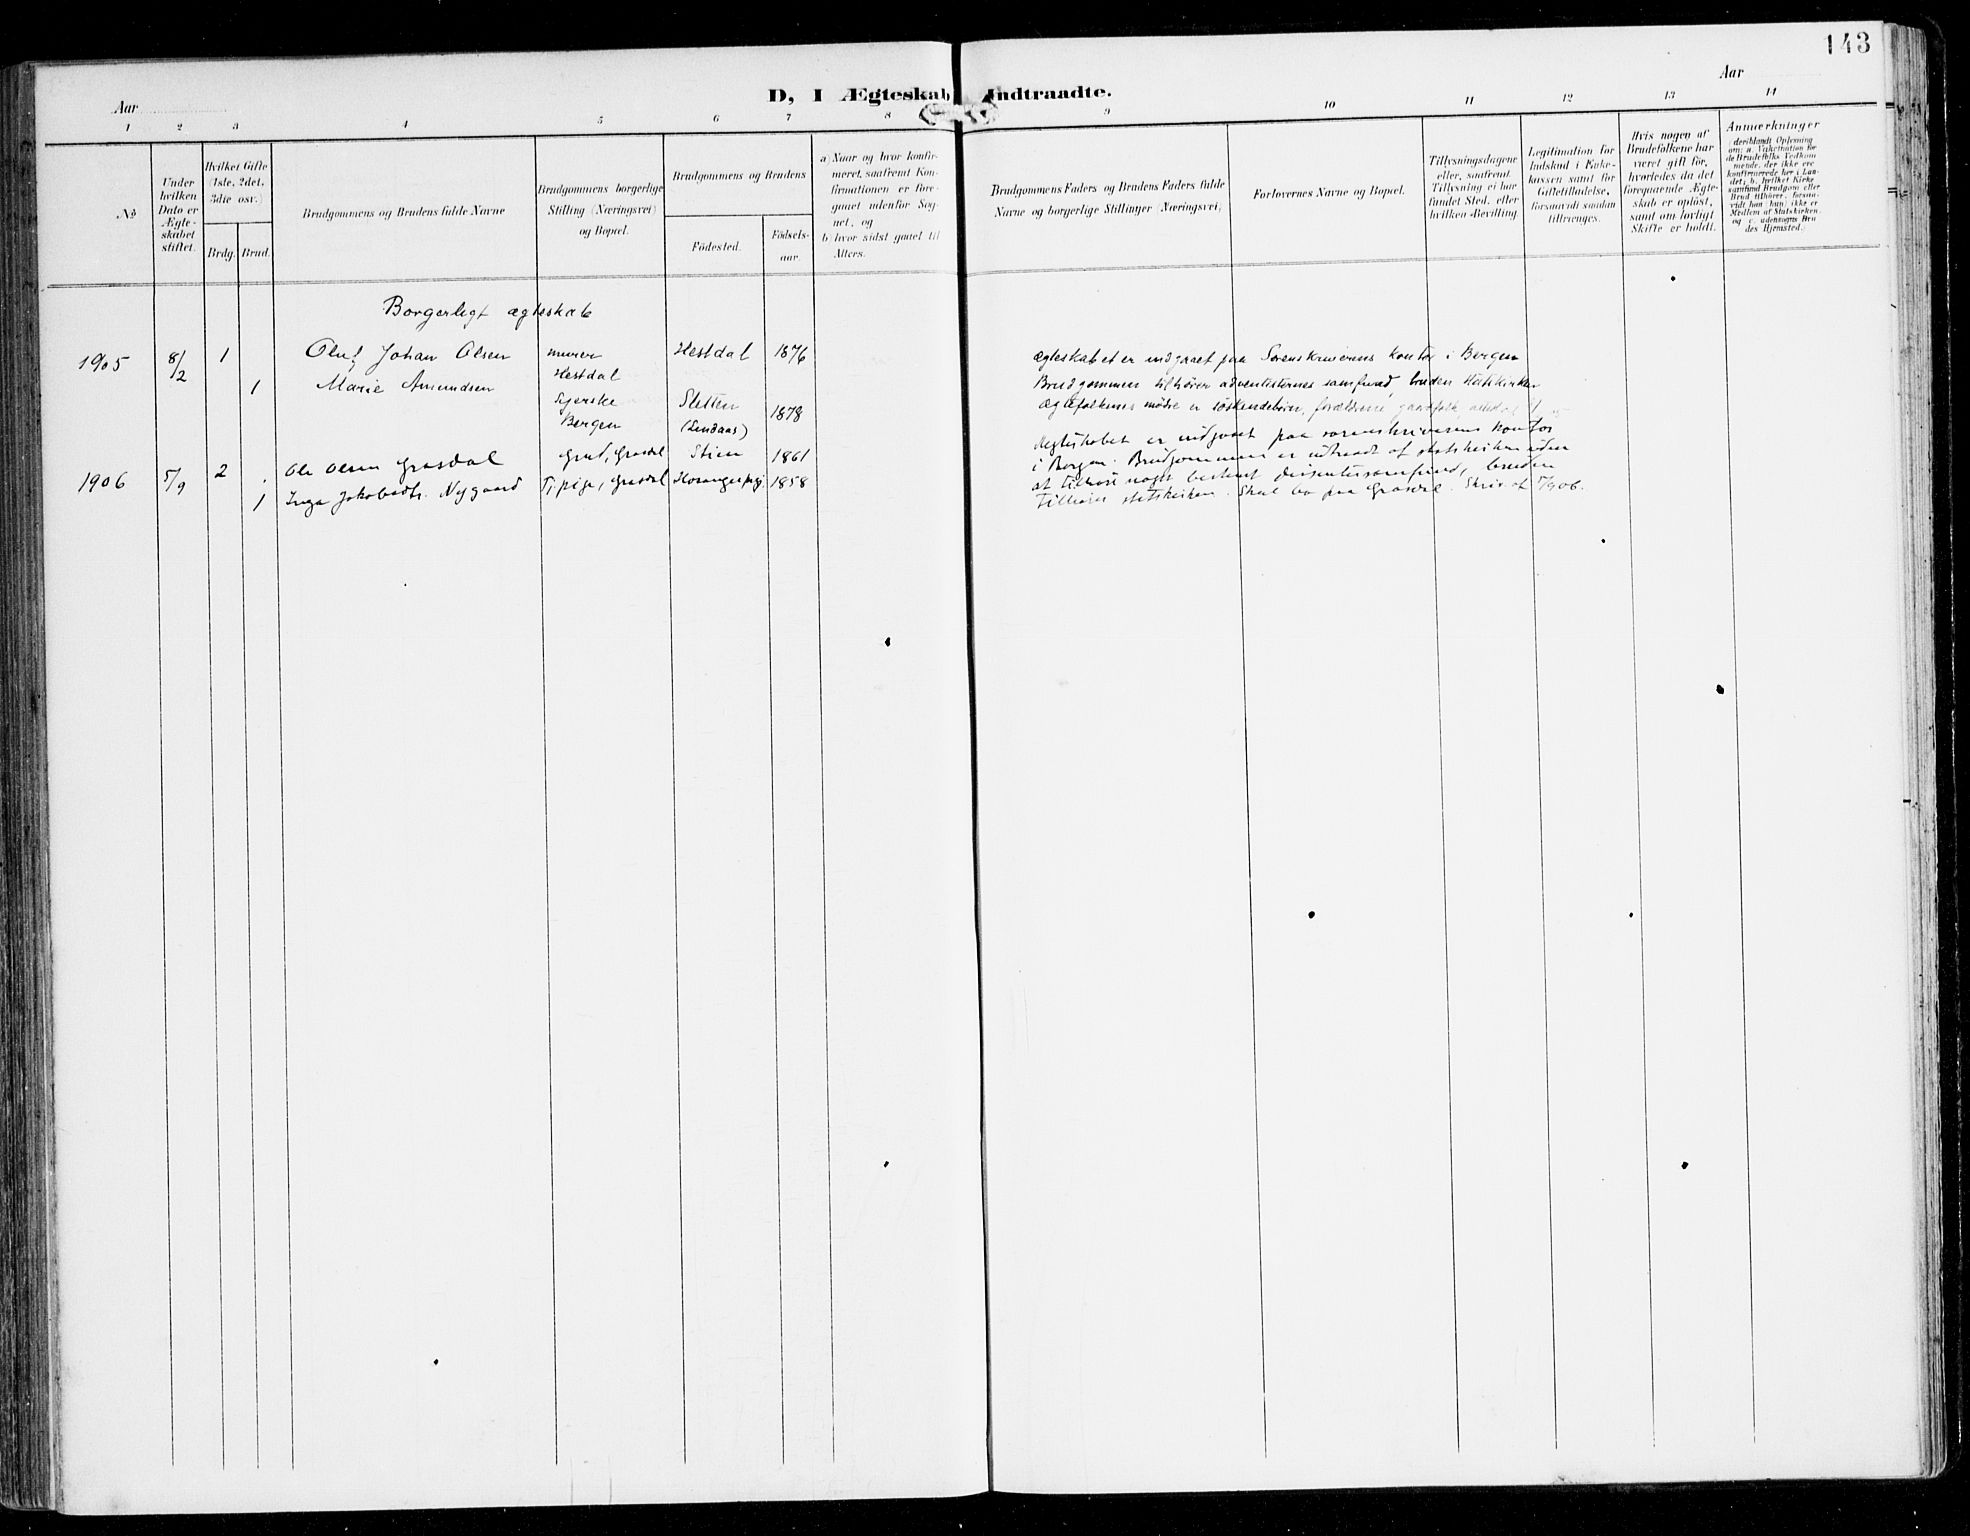 143
D, I Ægteskab Indtraadte.
Aar
Aar
1 2 3 4 5 6 7 8 9 10 11 12 13 14
№
Under hvilken Dato er Ægteskabet stiftet.
Hvilket Gifte (1ste, 2det, 3die osv.)
Brdg. Brud.
Brudgommens og Brudens fulde Navne
Brudgommens borgerlige Stilling (Næringsvei) og Bopæl.
Brudgommens og Brudens
Födested.
Födselsaar.
a) Naar og hvor konfirmeret, saafremt Konfirmationen er foregaaet udenför Sognet, og
b) hvor sidst gaaet til Alters.
Brudgommens Faders og Brudens Faders fulde Navne og borgerlige Stillinger (Næringsvei)
Forlovernes Navne og Bopæl.
Tillysningsdagene eller, saafremt Tillysning ei har fundet Sted, eller hvilken Bevilling
Legitimation før Indskud i Enkekassen samt for Giftetilladelse, forsaavidt saadan tiltrænges.
Hvis nogen af Brudefolkene har været gift för, hvorledes da det foregaaende Ægteskab er oplöst, samt om lovligt Skifte er holdt.
Anmerkninger
deriblandt Oplysning om: a. Vakcination for de Brudefolks Vedkommende, der ikke ere konfirmerede her i Landet; b. hvilket Kirkesamfund Brudgom eller Brud tilhörer, forsaavidt han (hun) ikke er Medlem af Statskirken og c. udensogns Brudes Hjemsted.
Borgerligt ægteskab
1905 8/2 1 Oluf Johan Olsen murer Hestdal Hestdal 1876
1 Marie Amundsen Syerske Bergen Sletten (Lindaas) 1878
ægteskabet er indgaaet paa Sorenskriverens kontor i Bergen
Brudgommen tilhører adventisternes samfund, bruden statskirken
Ægtefolkenes mødre er søskendebørn, forældrene gaardfolk
1906 5/9 2 Ole Olsen Grasdal Grud, Grasdal Stien 1861
1 Inga Jakobsdtr. Nygaard T. pige, Grasdal 1858
Ægteskabet er indgaaet paa sorenskriverens kontor
i Bergen. Brudgommen er udtraadt af statskirken uden
at tilhøre noget bestemt dissentersamfund, bruden
tilhører statskirken. Skal bo paa Grasdal. Skriv af 5/9 06.